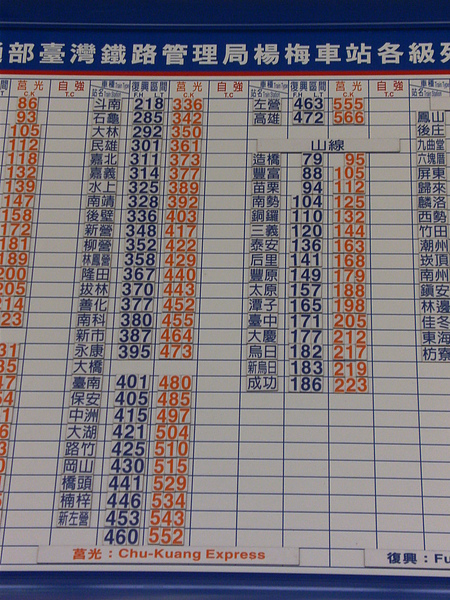 部臺灣鐵路管理局楊梅車站各級
莒光 C.K 自強 T.C 車種 Train Type 站名 Train Station 復興 F.H 區間 L.T 莒光 C.K 自強 T.C 車種 Train Type 站名 Train Station 復興 F.H 區間 L.T 莒光 C.K 自強 T.C
86 斗南 218 336 左營 463 555
93 石龜 285 342 高雄 472 566 鳳山
105 大林 292 350 後庄
112 民雄 301 361 山線 九曲堂
118 嘉北 311 373 造橋 79 95 六塊厝
132 嘉義 314 377 豐富 88 105 屏東
139 水上 325 389 苗栗 94 112 歸來
147 南靖 328 392 南勢 104 125 麟洛
158 後壁 336 403 銅鑼 110 132 西勢
172 新營 348 417 三義 120 144 竹田
181 柳營 352 422 泰安 136 163 潮州
189 林鳳營 358 429 后里 141 168 崁頂
200 隆田 367 440 豐原 149 179 南州
205 拔林 370 443 太原 157 188 鎮安
214 善化 377 452 潭子 165 198 林邊
223 南科 380 455 臺中 171 205 佳冬
新市 387 464 大慶 177 212 東海
永康 395 473 烏日 182 217 枋寮
大橋 新烏日 183 219
臺南 401 480 成功 186 223
保安 405 485
中洲 415 497
大湖 421 504
路竹 425 510
岡山 430 515
橋頭 441 529
楠梓 446 534
新左營 453 543
460 552
莒光：Chu-Kuang Express 復興：Fu